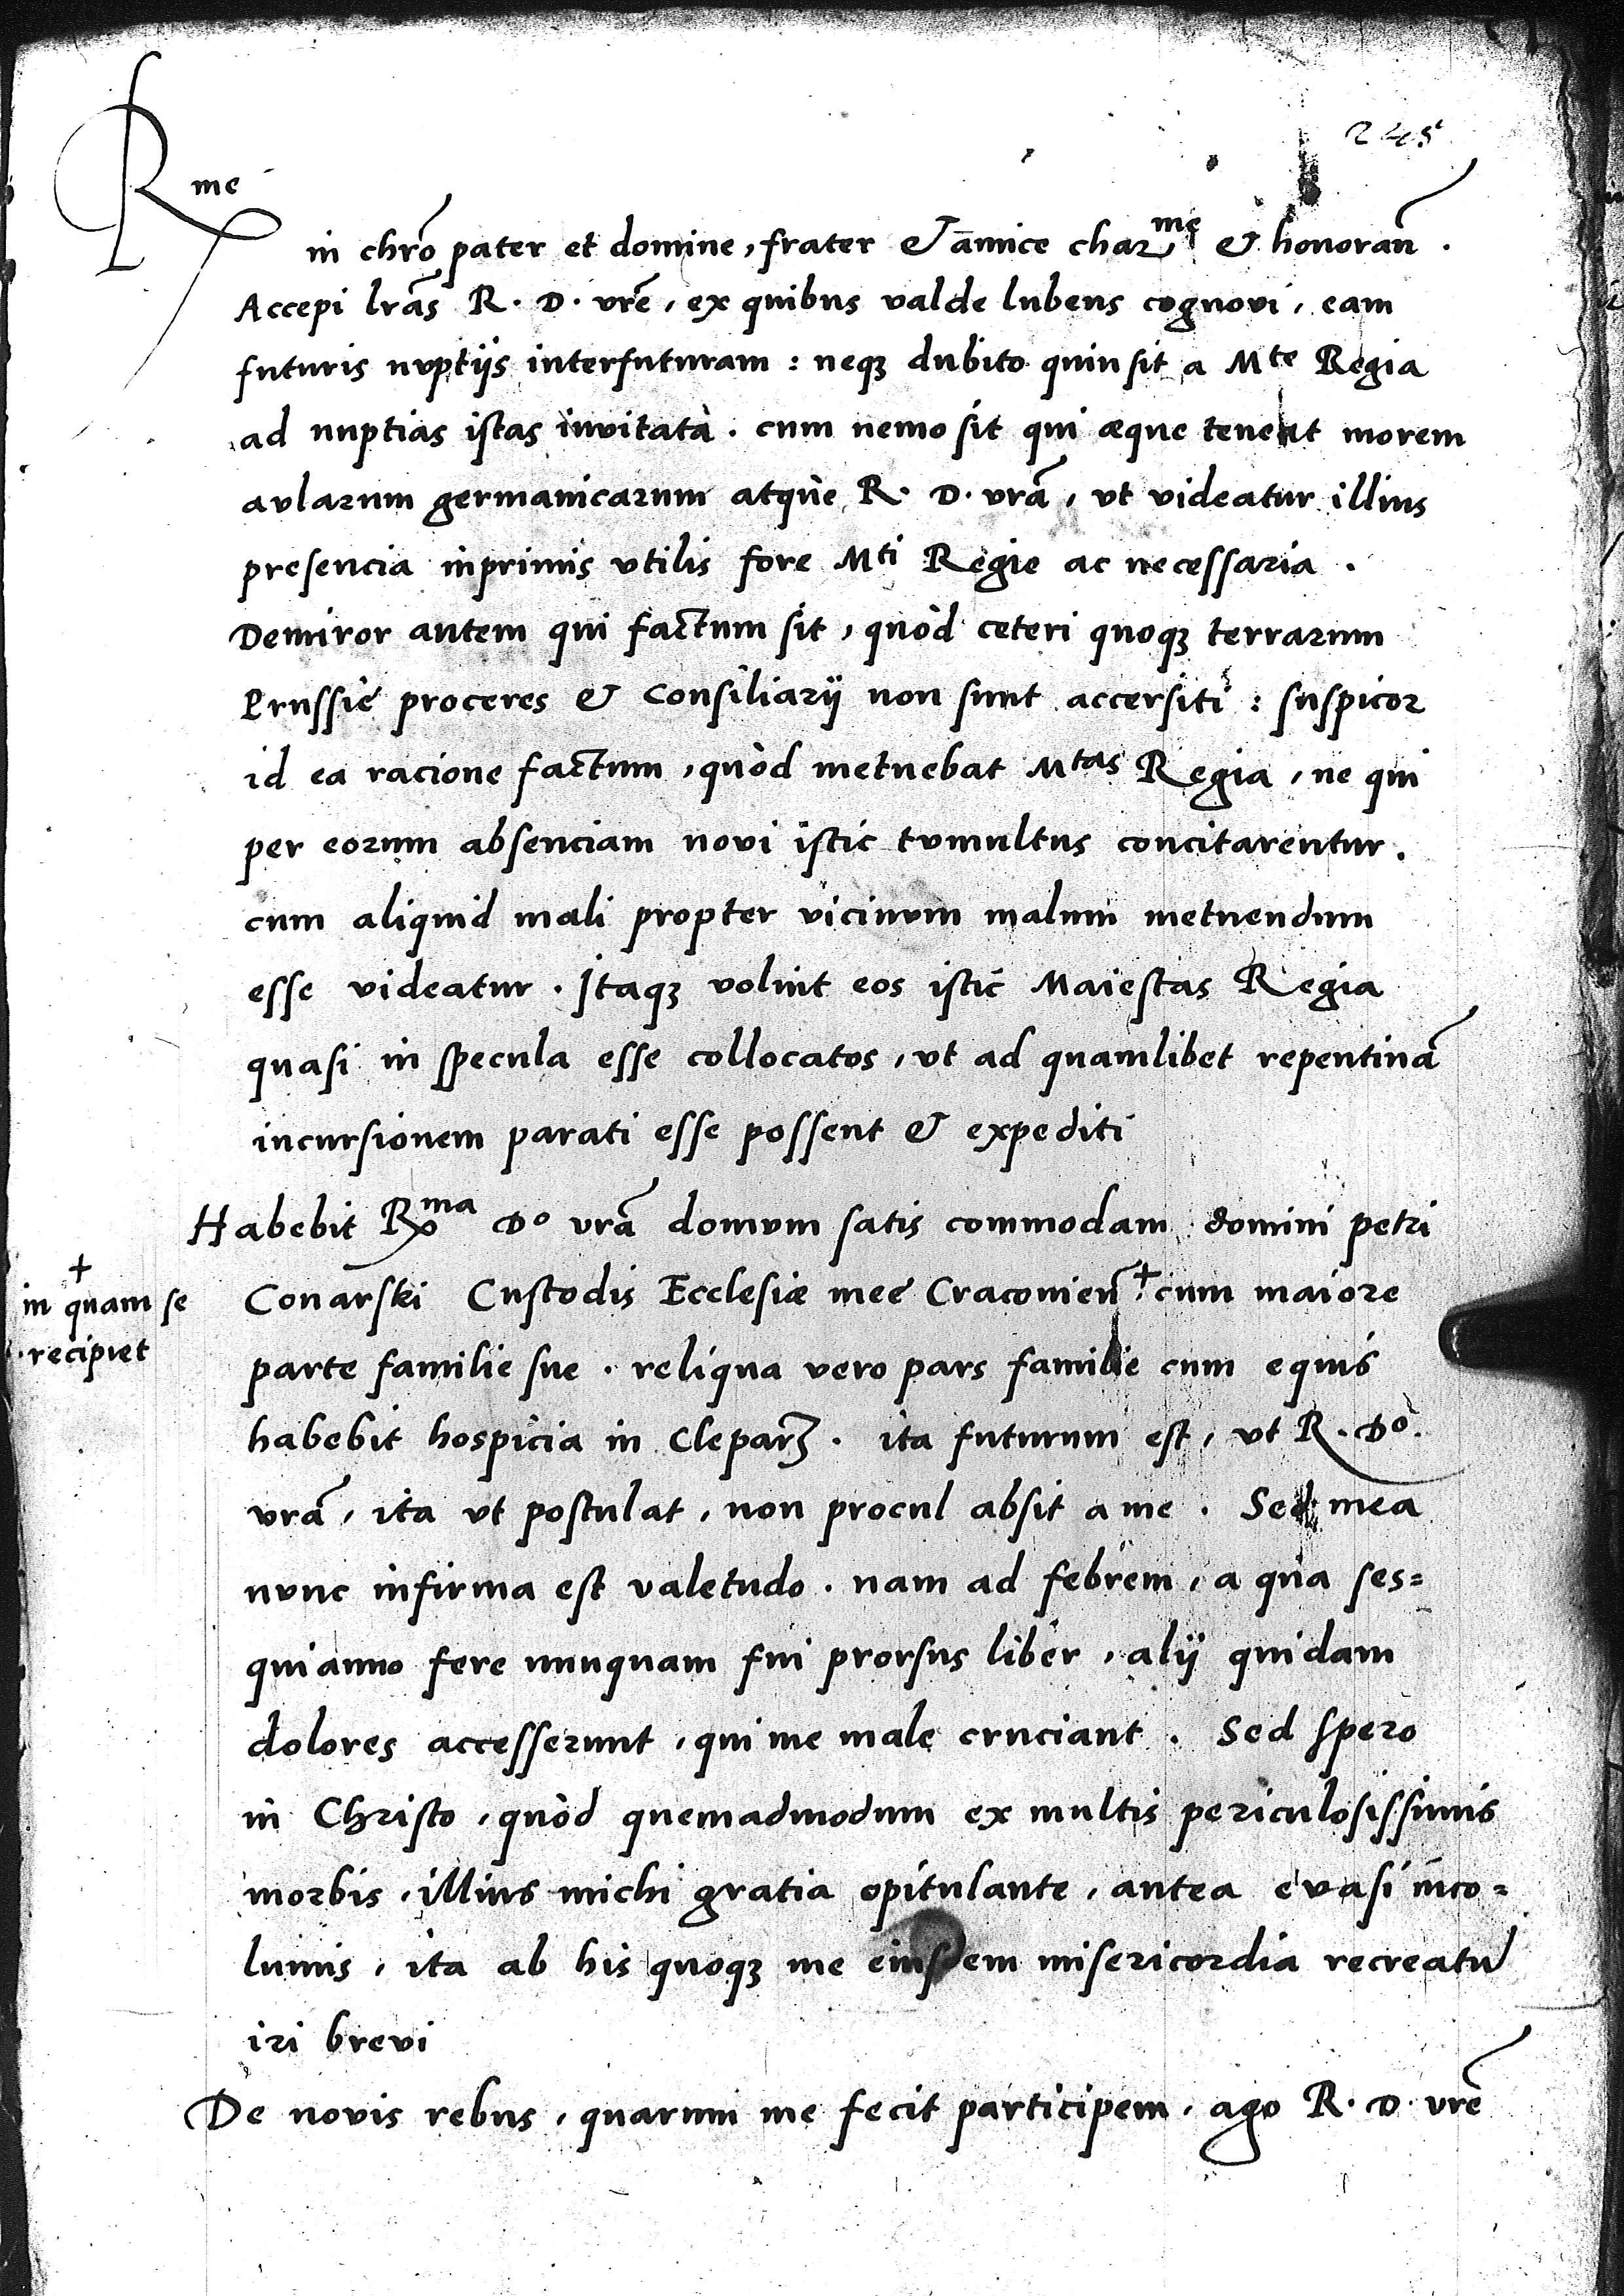 245
Rme
in chr̃o pater et domine, frater & amice charme & honorañ.
Accepi lr̃as R. D. vr̃e, ex quibus valde lubens cognovi, eam
futuris nvptijs interfuturam: neqꝫ dubito quin sit a Mte Regia
ad nuptias istas invitata. cum nemo sit qui æque teneat morem
avlarum germanicarum atque R. D. vrã, vt videatur illius
presencia inprimis vtilis fore Mti Regie ac necessaria.
Demiror autem qui factum sit, quòd ceteri quoqꝫ terrarum
Prussie proceres & Consiliarij non sunt accersiti: suspicor
id ea racione factum, quòd metuebat Mtas Regia, ne qui
per eorum absenciam novi istic tvmultus concitarentur.
cum aliquid mali propter vicinvm malum metuendum
esse videatur. Itaqꝫ voluit eos istic Maiestas Regia
quasi in specula esse collocatos, vt ad quamlibet repentinã
incursionem parati esse possent & expediti
Habebit Rma Do vrã domvm satis commodam domini petri
Conarski Custodis Ecclesiæ mee Cracovieñ.+ cum maiore
+
in quam se
recipiet
parte familie sue. reliqua vero pars familie cum equis
habebit hospicia in Cleparꝫ. ita futurum est, vt R. Do.
vrã, ita vt postulat, non procul absit a me. Sed mea
nvnc infirma est valetudo. nam ad febrem, a qua ses=
quianno fere nunquam fui prorsus liber, alij quidam
dolores accesserunt, qui me male cruciant. Sed spero
in Christo, quòd quemadmodum ex multis periculosissimis
morbis, illius michi gratia opitulante, antea evasi inco=
lumis, ita ab his quoqꝫ me eiusdem misericordia recreatũ
iri brevi
De novis rebus, quarum me fecit participem, ago R. D. vr̃e